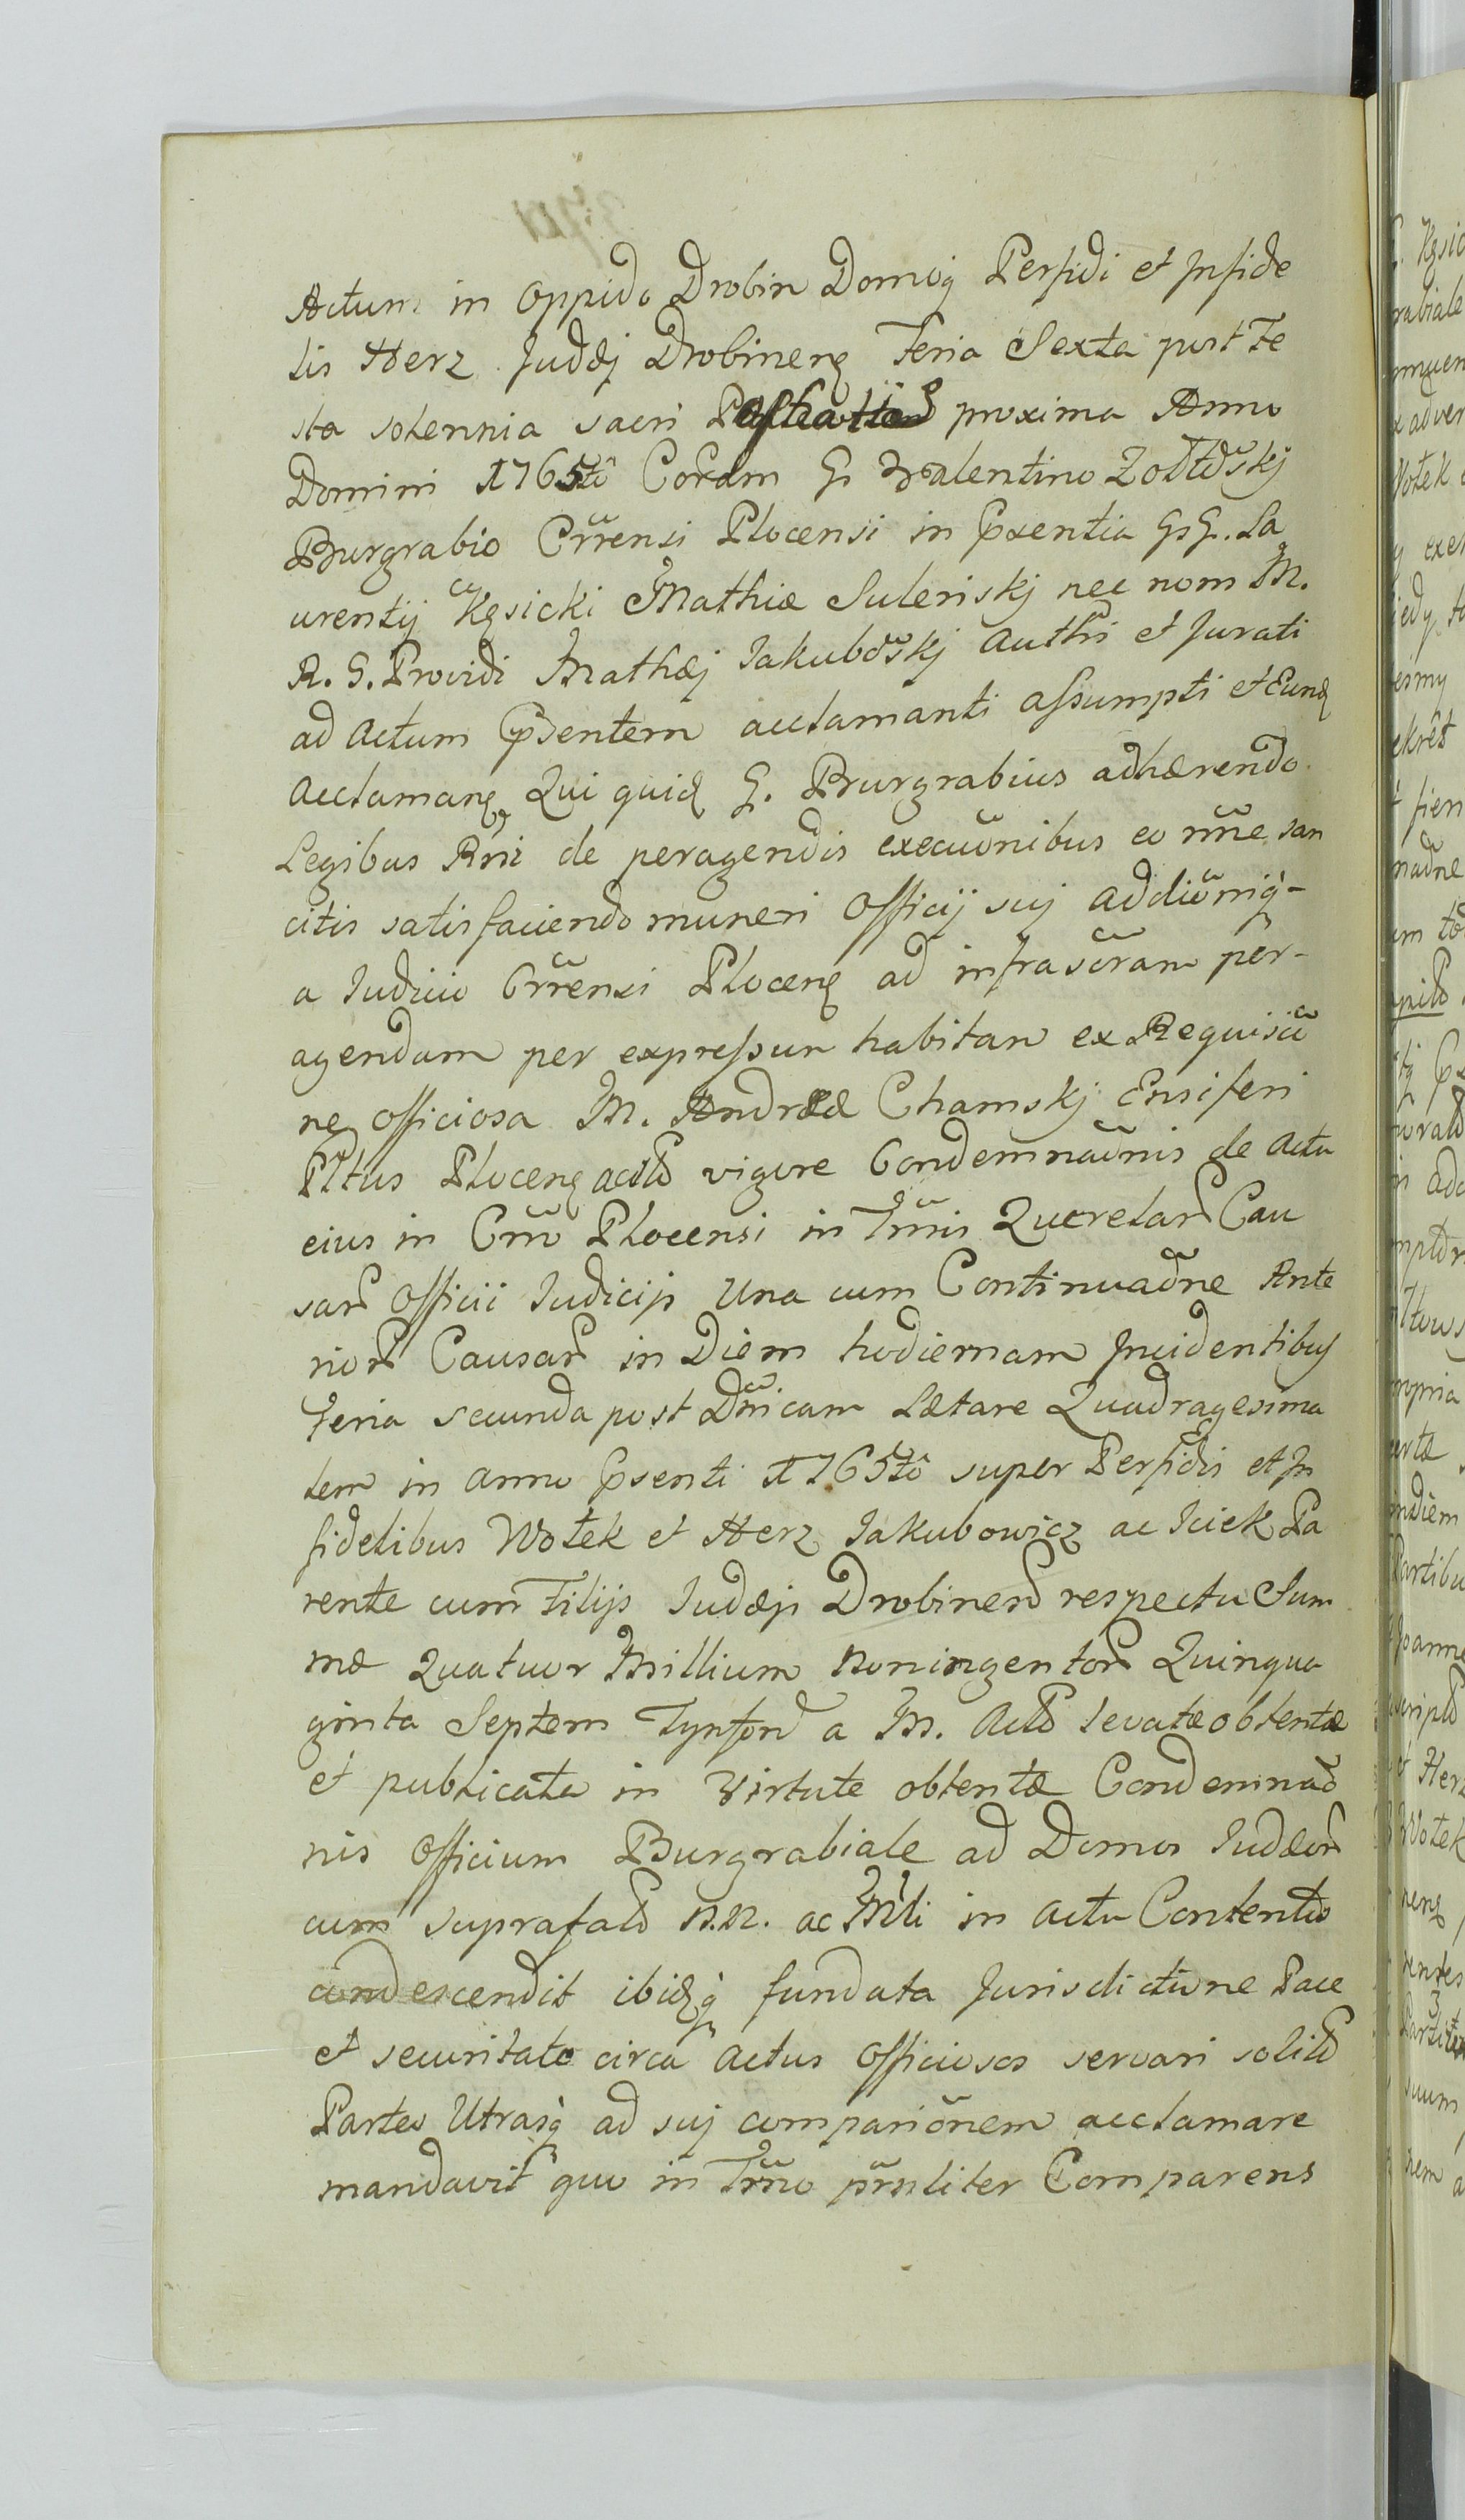 Actum in Oppido Drobin Domoq Perfidi et Infide
lis Herz Judæj Drobineñ Feria Sexta post Fe
sta solennia sacri proxima Anno
Domini 1765tô Coram G. Valentino Zołtõskj
Burgrabio Crrensi Plocensi in Pxentia G.G. La
urentij Kęsicki Mathiæ Suleriskj nec nom M.
R. G. Providi Mathæj Jakubõskj Authñ et Jurati
ad Actum Psentem acclamanti assumpti et Eund
Acclamanț Qui quid G. Burgrabius adhærendo
Legibus Rñi de peragendis execuõnibus eo nñe san
citis satisfaciendo muneri Officij suj addiõniq-
a Judicio Crrensi Ploceñ ad infrascram per-
agendam per expressum habitam ex Requisiõ
ne Officiosa M. Andreæ Chamskj Ensiferi
Pltus Ploceñ actt vigore Condemnaõnis de Actu
eius in Crro Plocensi in Trñis Querelar Cau
sar Officii Judicijs Una cum Continuaõne Ante
rior Causar in Diem hodiernam Incidentibus
Feria secunda post Dñicam Lætare Quadragesima
lem in anno Psenti 1765tô super Perfidis et In
fidelibus Wołek et Herz Jakubowicz ac Iciek Pa
rente cum Filijs Judæjs Drobinen respectu Sum
mæ Quatuor Millium Noningentor Quinqua
ginta Septem Tynfor a M. Actt levatæ obtentæ
et publicatæ in Virtute obtentæ Condemnaõ
nis Officium Burgrabiale ad Domos Judæor
cum suprafatt N.N. ac Mli in actu Contentis
condescendit ibidq fundata Jurisdictione Pace
et securitate circa Actus Officiosos servari solitt
Partes Utrasq ad suj compariõnem acclamare
mandavit quo in Trño prñliter Comparens